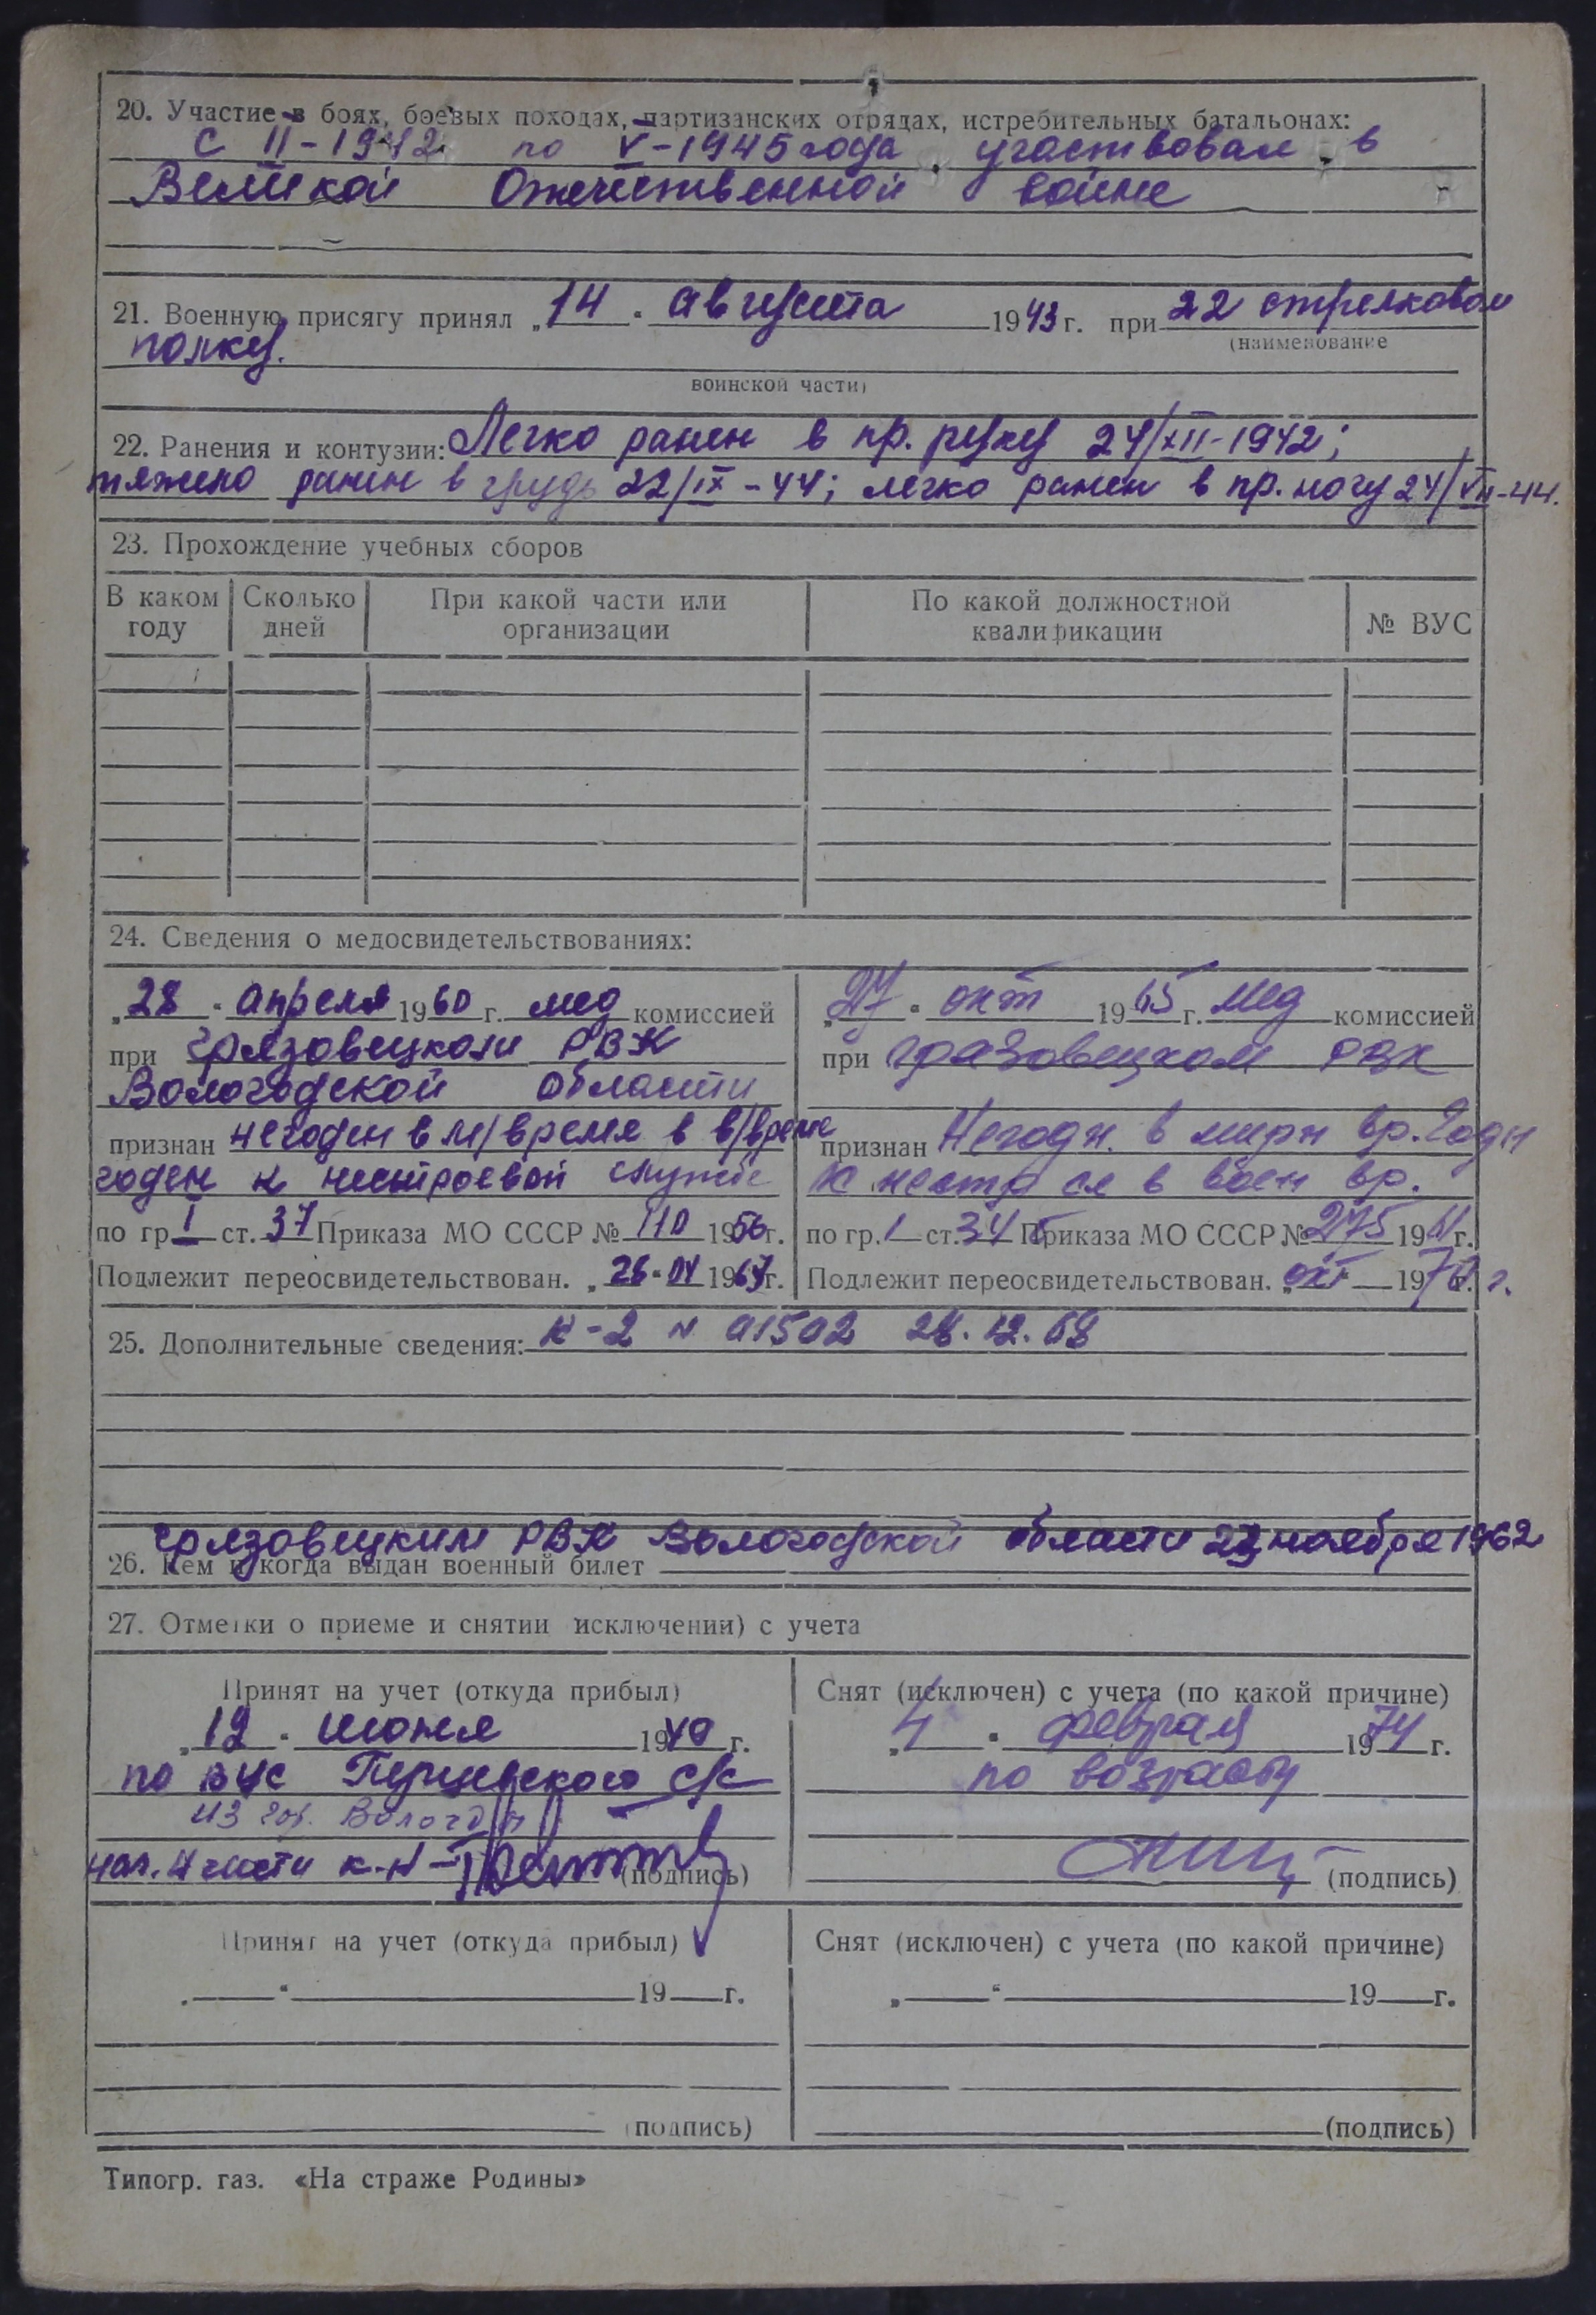 20. Участие в боях, боевых походах, партизанских отрядах, истребительных батальонах:
с II-1942 по V-1945 года участвовал в
Великой Отечественной войне
21. Военную присягу принял „14“ августа 1943 г. при 22 стрелковом
(наименование
полку.
воинской части)
22. Ранения и контузии: Легко ранен в пр. руку 24/XII-1942;
тяжело ранен в грудь 22/IX-44; легко ранен в пр. ногу 24/VII-44.
23. Прохождение учебных сборов
В каком году | Сколько дней | При какой части или организации | По какой должностной квалификации | № ВУС
24. Сведения о медосвидетельствованиях:
„28“ апреля 1960 г. мед комиссией
при Грязовецком РВК
Вологодской области
признан негоден в м/время в в/время
годен к нестроевой службе
по гр. I ст. 37 Приказа МО СССР № 110 1956 г.
Подлежит переосвидетельствован. „26“ 1967 г.
„27“ окт 1965 г. мед комиссией
при Грязовецком РВК
признан Негодн. в мирн вр. Годн
к нестр сл в воен вр.
по гр. I ст. 34 Приказа МО СССР № 275 1961 г.
Подлежит переосвидетельствован. „окт 197 г.
25. Дополнительные сведения: К-2 N 01502 28.12.68
Грязовецким РВК Вологодской области 23 ноября 1962
26. Кем и когда выдан военный билет
27. Отметки о приеме и снятии исключении) с учета
Принят на учет (откуда прибыл)
„12“ июня 1949 г.
по ВУС Перцевского с/с
из гор. Вологды
нач. 4 части к-н (подпись)
Снят (исключен) с учета (по какой причине)
„4“ февраля 1974 г.
по возрасту
(подпись)
Принят на учет (откуда прибыл)
„ “ 19 г.
(подпись)
Снят (исключен) с учета (по какой причине)
„ “ 19 г.
(подпись)
Типогр. газ. «На страже Родины»